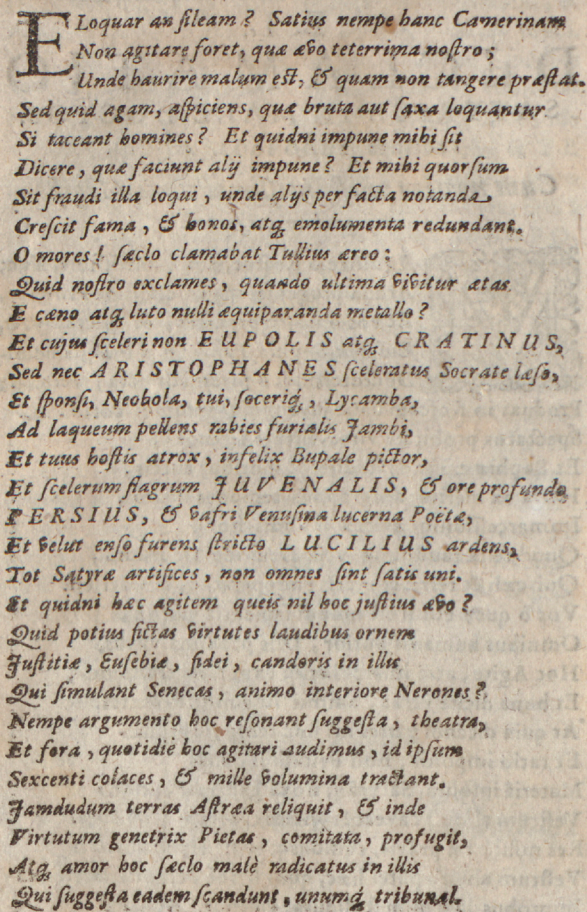 ELoquar an sileam? Satius nempe hanc Camerinam
Non agitare foret, quæ ævo teterrima nostro;
Unde haurire malum est, & quam non tangere præstat.
Sed quid agam, aspiciens, quæ bruta aut saxa loquantur
Si taceant homines? Et quidni impune mihi sit
Dicere, quæ faciunt alij impune? Et mihi quorsum
Sit fraudi illa loqui, unde alijs per facta notanda
Crescit fama, & honos, atq; emolumenta redundant.
O mores! sæclo clamabat Tullius æreo:
Quid nostro exclames, quando ultima vivitur ætas
E cæno atq; luto nulli æquiparanda metallo?
Et cujus sceleri non EUPOLIS atq; CRATINUS,
Sed nec ARISTOPHANES sceleratus Socrate læso,
Et sponsi, Neobola, tui, soceriq;, Lycamba,
Ad laqueum pellens rabies furialis Jambi,
Et tuus hostis atrox, infelix Bupale pictor,
Et scelerum flagrum JUVENALIS, & ore profundo
PERSIUS, & vafri Venusina lucerna Poëtæ,
Et velut ense furens stricto LUCILIUS ardens,
Tot Satyræ artifices, non omnes sint satis uni.
Et quidni hæc agitem queis nil hoc justius ævo?
Quid potius fictas virtutes laudibus ornem
Justitiæ, Eusebiæ, fidei, candoris in illis
Qui simulant Senecas, animo interiore Nerones?
Nempe argumento hoc resonant suggesta, theatra,
Et fora, quotidie hoc agitari audimus, id ipsum
Sexcenti colaces, & mille volumina tractant.
Jamdudum terras Astræa reliquit, & inde
Virtutum genetrix Pietas, comitata, profugit,
Atq; amor hoc sæclo malè radicatus in illis
Qui suggesta eadem scandunt, unumq; tribunal.